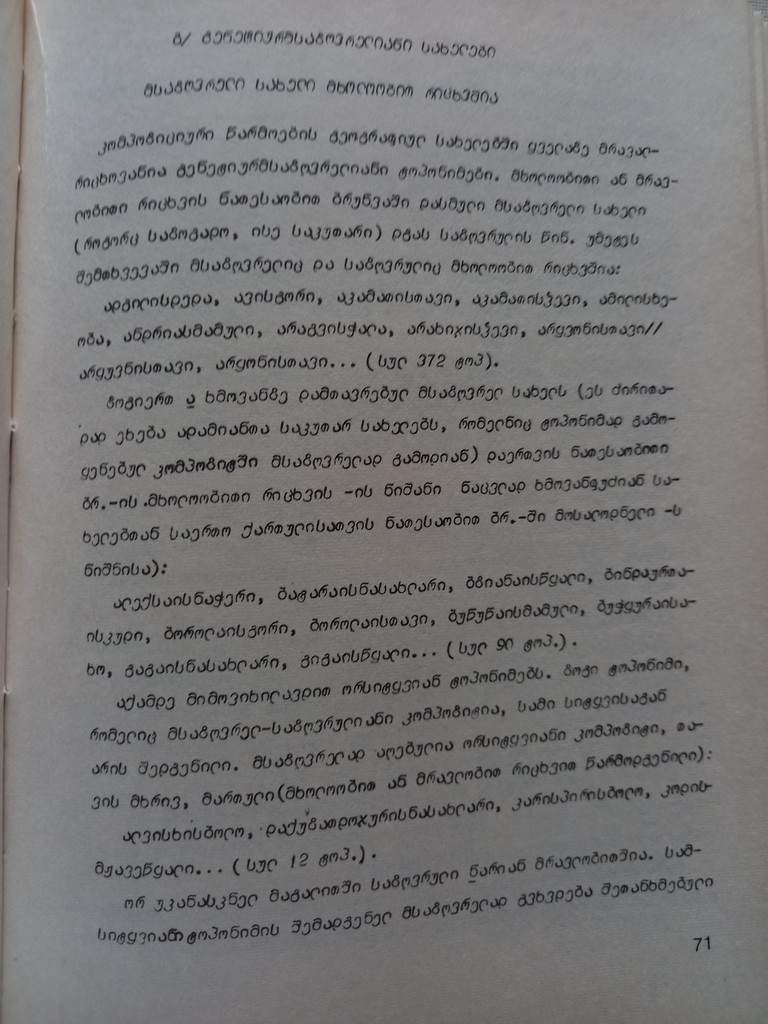 გ/ გენეტიურმსაზღვრელიანი სახელები
მსაზღვრელი სახელი მხოლოობით რიცხვშია
კომპოზიციური წარმოების გეოგრაფიულ სახელებში ყველაზე მრავალ-
რიცხოვანია გენეტიურმსაზღვრელიანი ტოპონიმები. მხოლოობითი ან მრავ-
ლობითი რიცხვის ნათესაობით ბრუნვაში დასმული მსაზღვრელი სახელი
(როგორც საზოგადო, ისე საკუთარი) დგას საზღვრულის წინ. უმეტეს
შემთხვევაში მსაზღვრელიც და საზღვრულიც მხოლოობით რიცხვშია:
ადგილისდედა, ავისგორი, აკამათისთავი, აკამათისჴევი, ამილისხე-
ობა, ანდრიასმამული, არაგვისჭალა, არახიჯისჴევი, არყვონისთავი//
არყუვნისთავი, არყონისთავი... (სულ 372 ტოპ).
ზოგიერთ ა ხმოვანზე დამთავრებულ მსაზღვრელ სახელს (ეს ძირითა-
დად ეხება ადამიანთა საკუთარ სახელებს, რომელნიც ტოპონიმად გამო-
ყენებულ კომპოზიტში მსაზღვრელად გამოდიან) დაერთვის ნათესაობითი
ბრ.-ის მხოლოობითი რიცხვის -ის ნიშანი ნაცვლად ხმოვანფუძიან სა-
ხელებთან საერთო ქართულისათვის ნათესაობით ბრ.-ში მოსალოდნელი -ს
ნიშნისა):
ალექსაისნაჭერი, ბატარაისნასახლარი, ბზიანაისწყალი, ბინდაურთა-
ისკუდი, ბოროლაისგორი, ბოროლაისთავი, ბუნუნაისმამული, ბუჭყურაისა-
ხო, გაგაისნასახლარი, გიგაისწყალი... (სულ 90 ტოპ.).
აქამდე მიმოვიხილავდით ორსიტყვიან ტოპონიმებს. ზოგი ტოპონიმი,
რომელიც მსაზღვრელ-საზღვრულიანი კომპოზიტია, სამი სიტყვისაგან
არის შედგენილი. მსაზღვრელად აღებულია ორსიტყვიანი კომპოზიტი, თა-
ვის მხრივ, მართული (მხოლოობით ან მრავლობით რიცხვით წარმოდგენილი):
ალვისხისბოლო, დაქუზათდოჯურისნასახლარი, კარისპირისბოლო, კოდის-
მჟავეწყალი... (სულ 12 ტოპ.).
ორ უკანასკნელ მაგალითში საზღვრული ნარიან მრავლობითშია. სამ-
სიტყვიანი ტოპონიმის შემადგენელ მსაზღვრელად გვხვდება შეთანხმებული
71